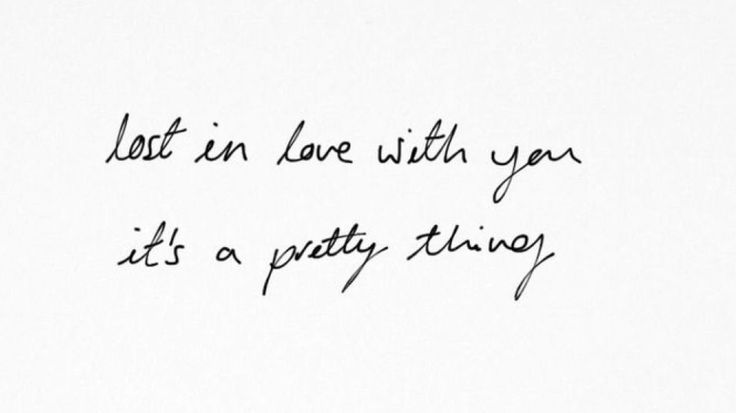 lost in love with you
it's a pretty thing